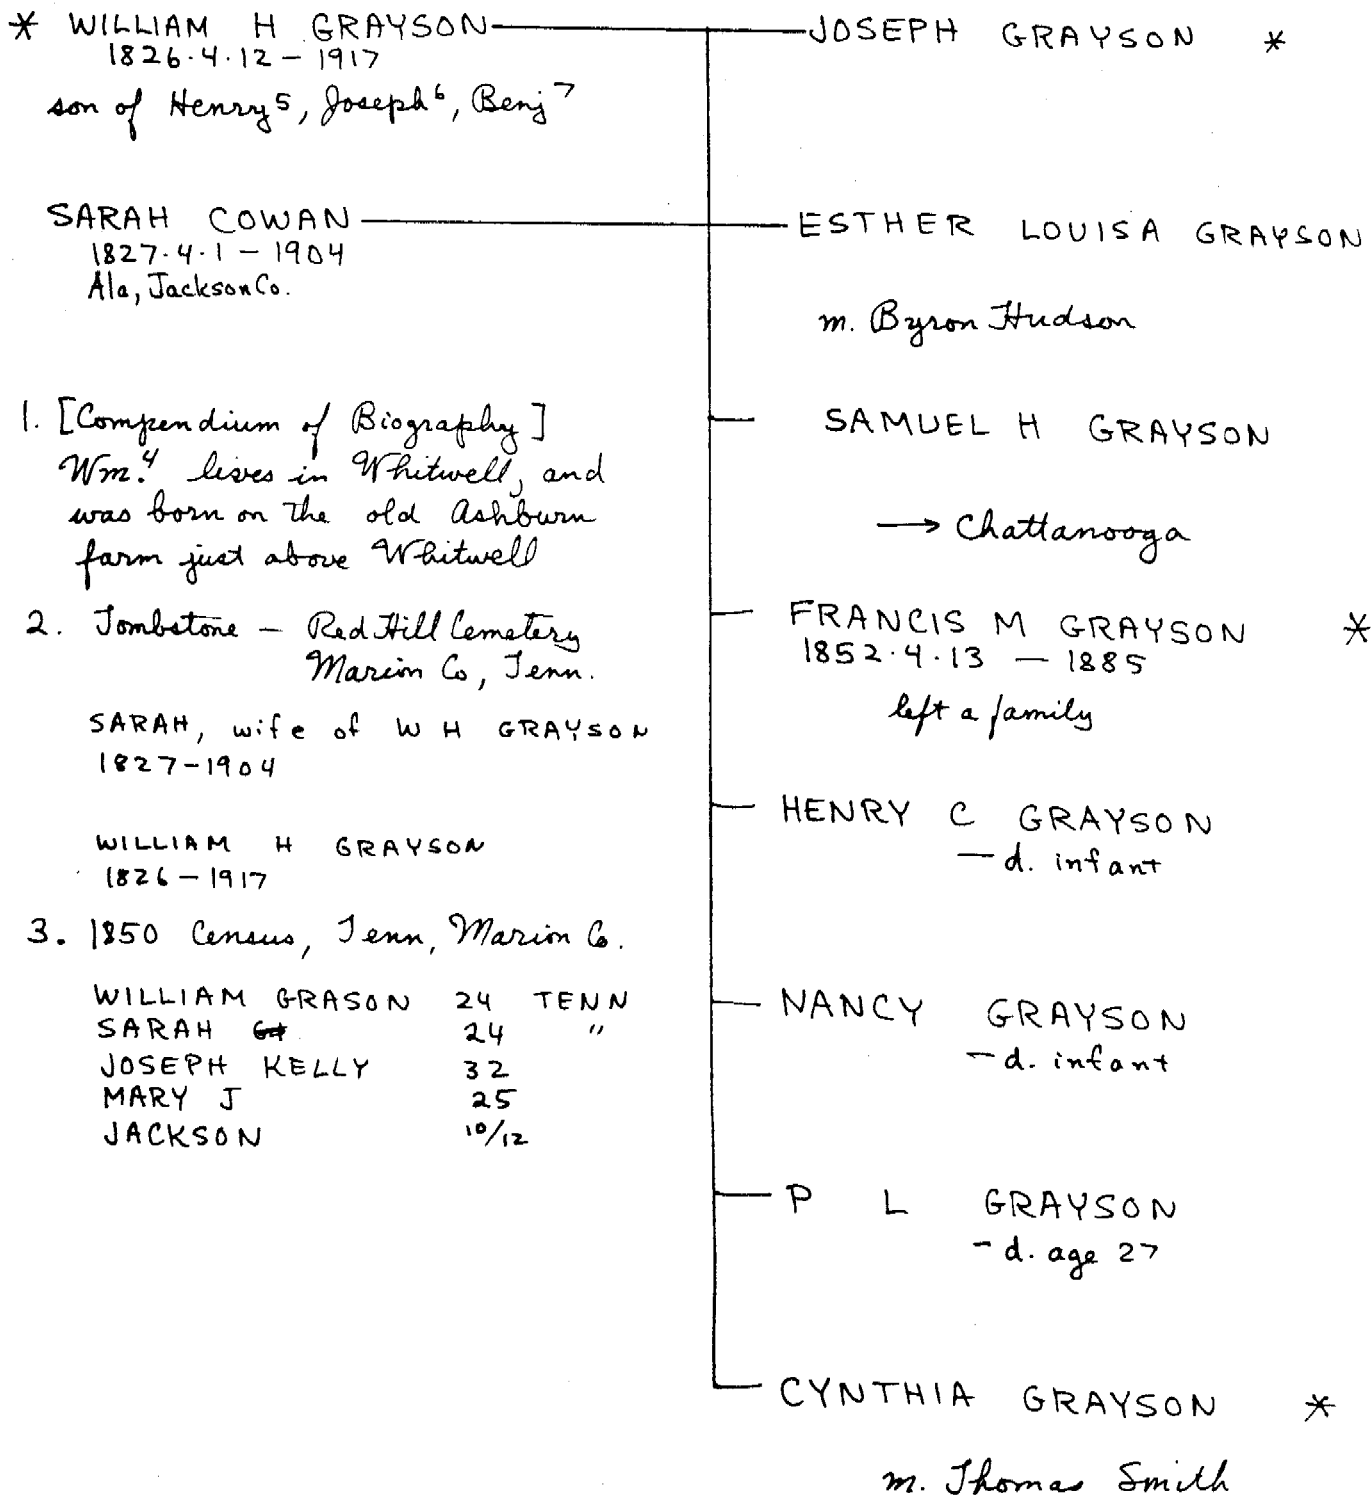 * WILLIAM H GRAYSON
1826.4.12 - 1917
son of Henry⁵, Joseph⁶, Benj⁷
SARAH COWAN
1827.4.1 - 1904
Ala, Jackson Co.
1. [Compendium of Biography]
Wm.⁴ lives in Whitwell, and
was born on the old Ashburn
farm just above Whitwell
2. Tombstone - Red Hill Cemetery
Marion Co, Tenn.
SARAH, wife of W H GRAYSON
1827-1904
WILLIAM H GRAYSON
1826-1917
3. 1850 Census, Tenn, Marion Co.
WILLIAM GRASON 24 TENN
SARAH 24 "
JOSEPH KELLY 32
MARY J 25
JACKSON 10/12
JOSEPH GRAYSON *
ESTHER LOUISA GRAYSON
m. Byron Hudson
SAMUEL H GRAYSON
→ Chattanooga
FRANCIS M GRAYSON *
1852.4.13 - 1885
left a family
HENRY C GRAYSON
- d. infant
NANCY GRAYSON
- d. infant
P L GRAYSON
- d. age 27
CYNTHIA GRAYSON *
m. Thomas Smith